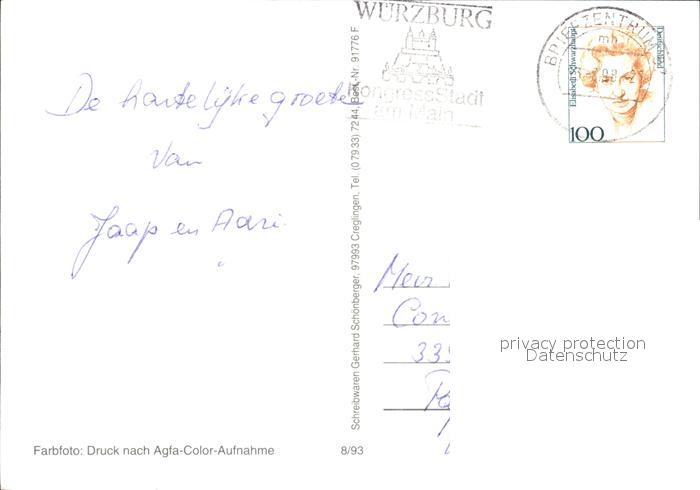 De hartelijke groeten
van
Jaap en Adri.
Farbfoto: Druck nach Agfa-Color-Aufnahme
8/93
Schreibwaren Gerhard Schönberger, 97993 Creglingen, Tel. (07933) 7244, Best.-Nr. 91776 F
WÜRZBURG
KongressStadt
am Main
BRIEFZENTRUM
mb
Elisabeth Schwarzhaupt
Deutschland
100
Con
335
privacy protection
Datenschutz